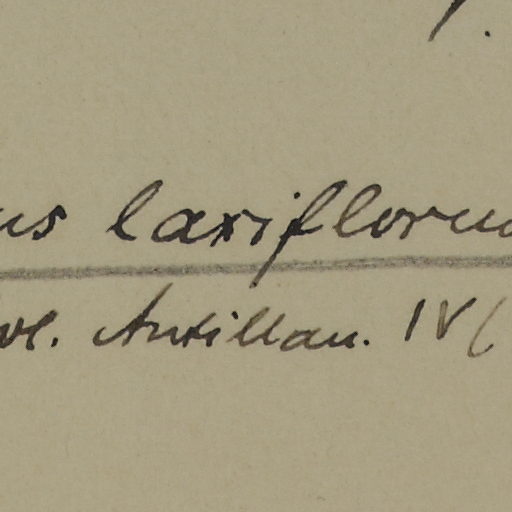 us laxiflorus
bl. Antillan. IV (